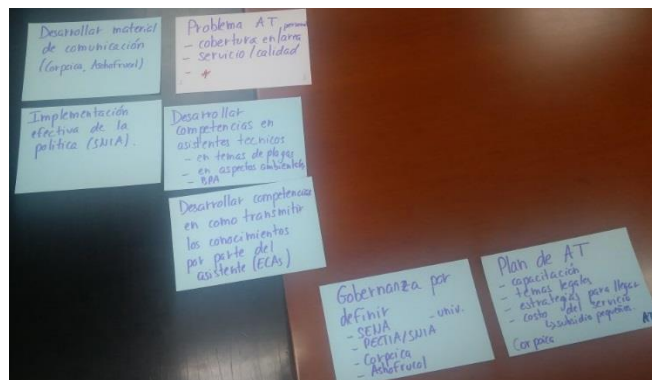 Desarrollar material
de comunicación
(Corpoica, Ashofrucol)
Problema AT
- cobertura en área
- servicio/calidad
-
Implementación
efectiva de la
política (SNIA).
Desarrollar
competencias en
asistentes tecnicos
- en temas de plagas
- en aspectos ambientales
- BPA
Desarrollar competencias
en como transmitir
los conocimientos
por parte del
asistente (ECAs)
Gobernanza por
definir
- SENA - univ.
- PECTIA/SNIA
- Corpoica
- Ashofrucol
Plan de AT
- capacitación
- temas legales
- estrategias para llegar
- costo del servicio
↳ subsidio pequeños
AT
Corpoica